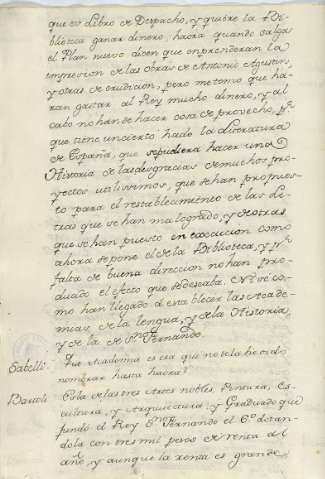 que es Libro de Despacho, y quiere la Bi-
blioteca ganar dinero haora quando salga
el Plan nuevo dicen que emprenderan la
impresion de las obras de Antonio Agustin,
y otras de erudicion, pero me temo que ha-
ran gastar al Rey mucho dinero, y al
cabo no han de hacer cosa de provecho, pr
que tiene un cierto hado la Literatura
de España, que se pudiera hacer una
Historia de las desgracias de muchos pro-
yectos utilissimos, que se han propues-
to para el restablecimiento de las Le-
tras que se han malogrado, y de otras
que se han puesto en execucion como
ahora se pone el de la Biblioteca, y pr
falta de buena direccion no han pro-
ducido el efecto que se deseaba. No sé co-
mo han llegado á establecer las Acade-
mias de la lengua, y de la Historia,
y de la de Sn. Fernando.
Sabelli. Que Academia es esa que no te la he oido
nombrar hasta haora?
Bartoli Es la de las tres Artes nobles Pintura, Es-
cultura, y Arquitectura, y Grabado que
fundó el Rey Dn Fernando el 6º dotan-
dola con tres mil pesos de renta al
año, y aunque la renta es grande